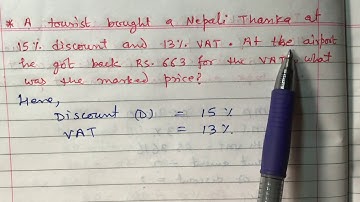 * A tourist bought a Nepali Thanka at
15% discount and 13% VAT. At the airport
he got back Rs. 663 for the VAT, what
was the marked price?
Here,
Discount (D) = 15%
VAT = 13%.